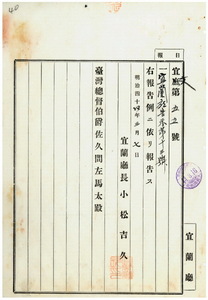 報日
宜庶第五五號
一宜蘭廳報第十五號
右報告例ニ依リ報告ス
明治四十四年 月七日
宜蘭廳長小松吉久
臺灣總督伯爵佐久間左馬太殿
宜蘭廳